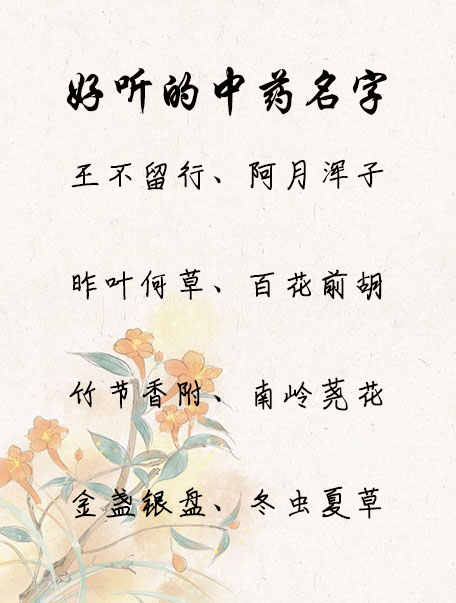 好听的中药名字
王不留行、阿月浑子
昨叶何草、百花前胡
竹节香附、南岭荛花
金盏银盘、冬虫夏草